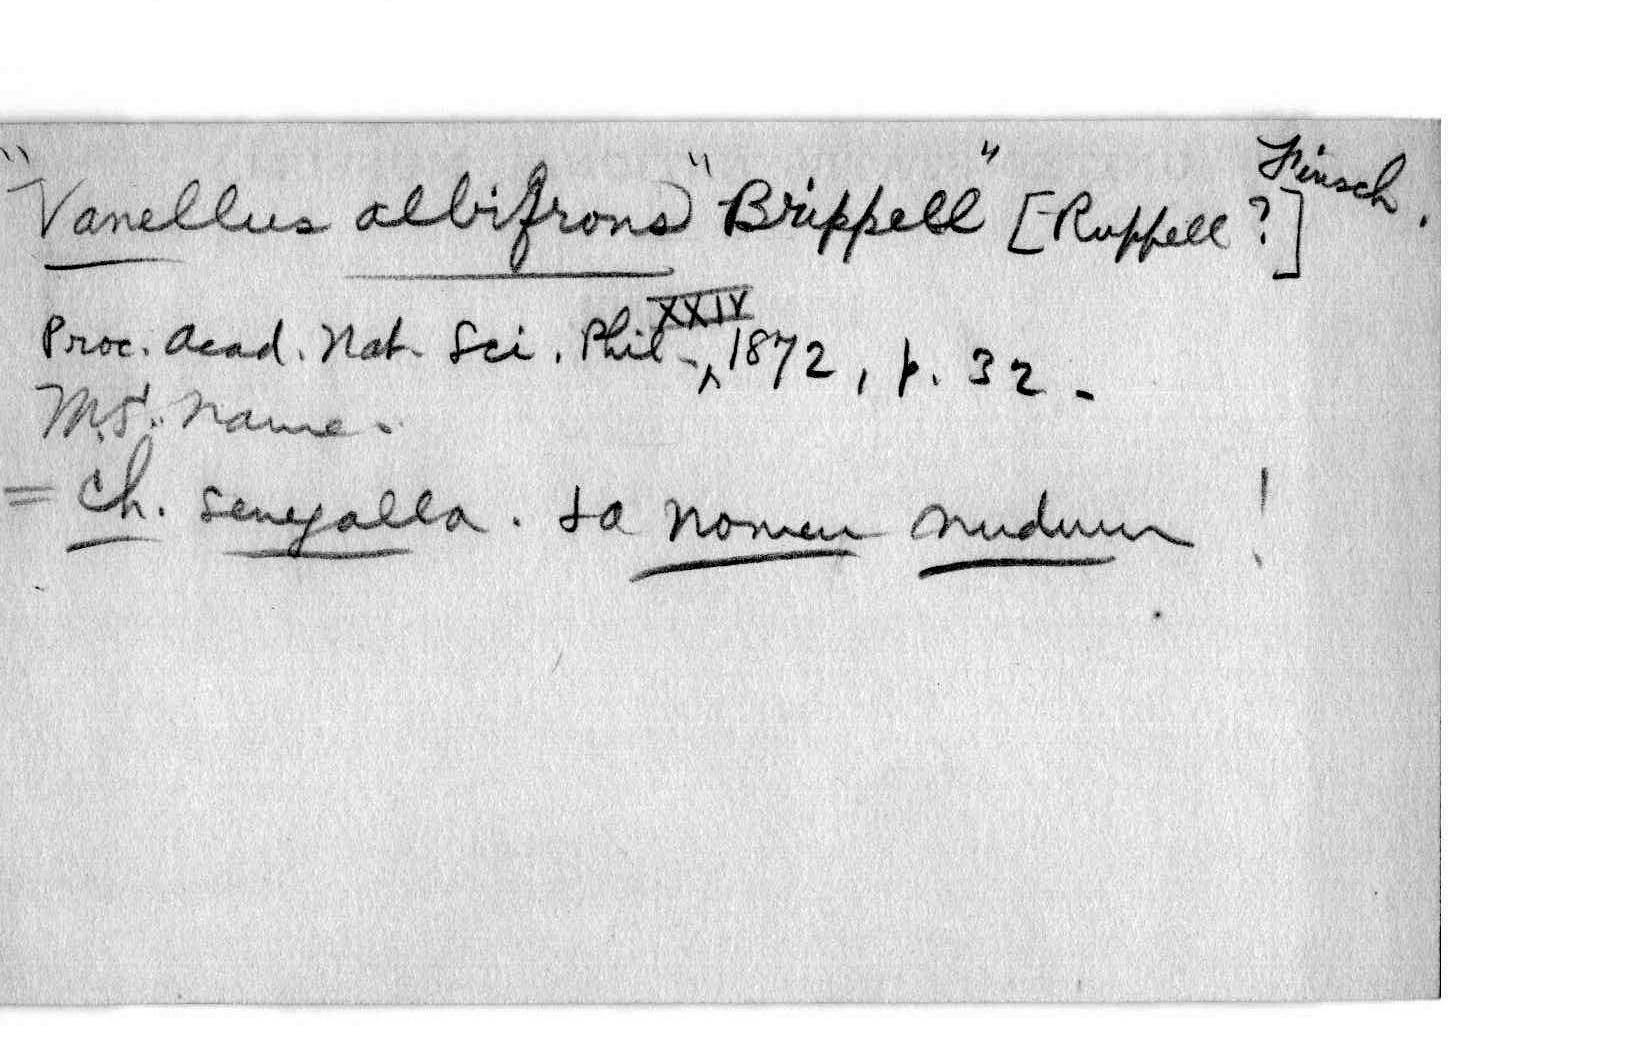 "Vanellus albifrons" "Brüppell" [Ruppell?] Finsch.
Proc. Acad. Nat. Sci. Phil. XXIV 1872, p. 32.
M.S. name.
= Ch. senegalla. + a nomen nudum!